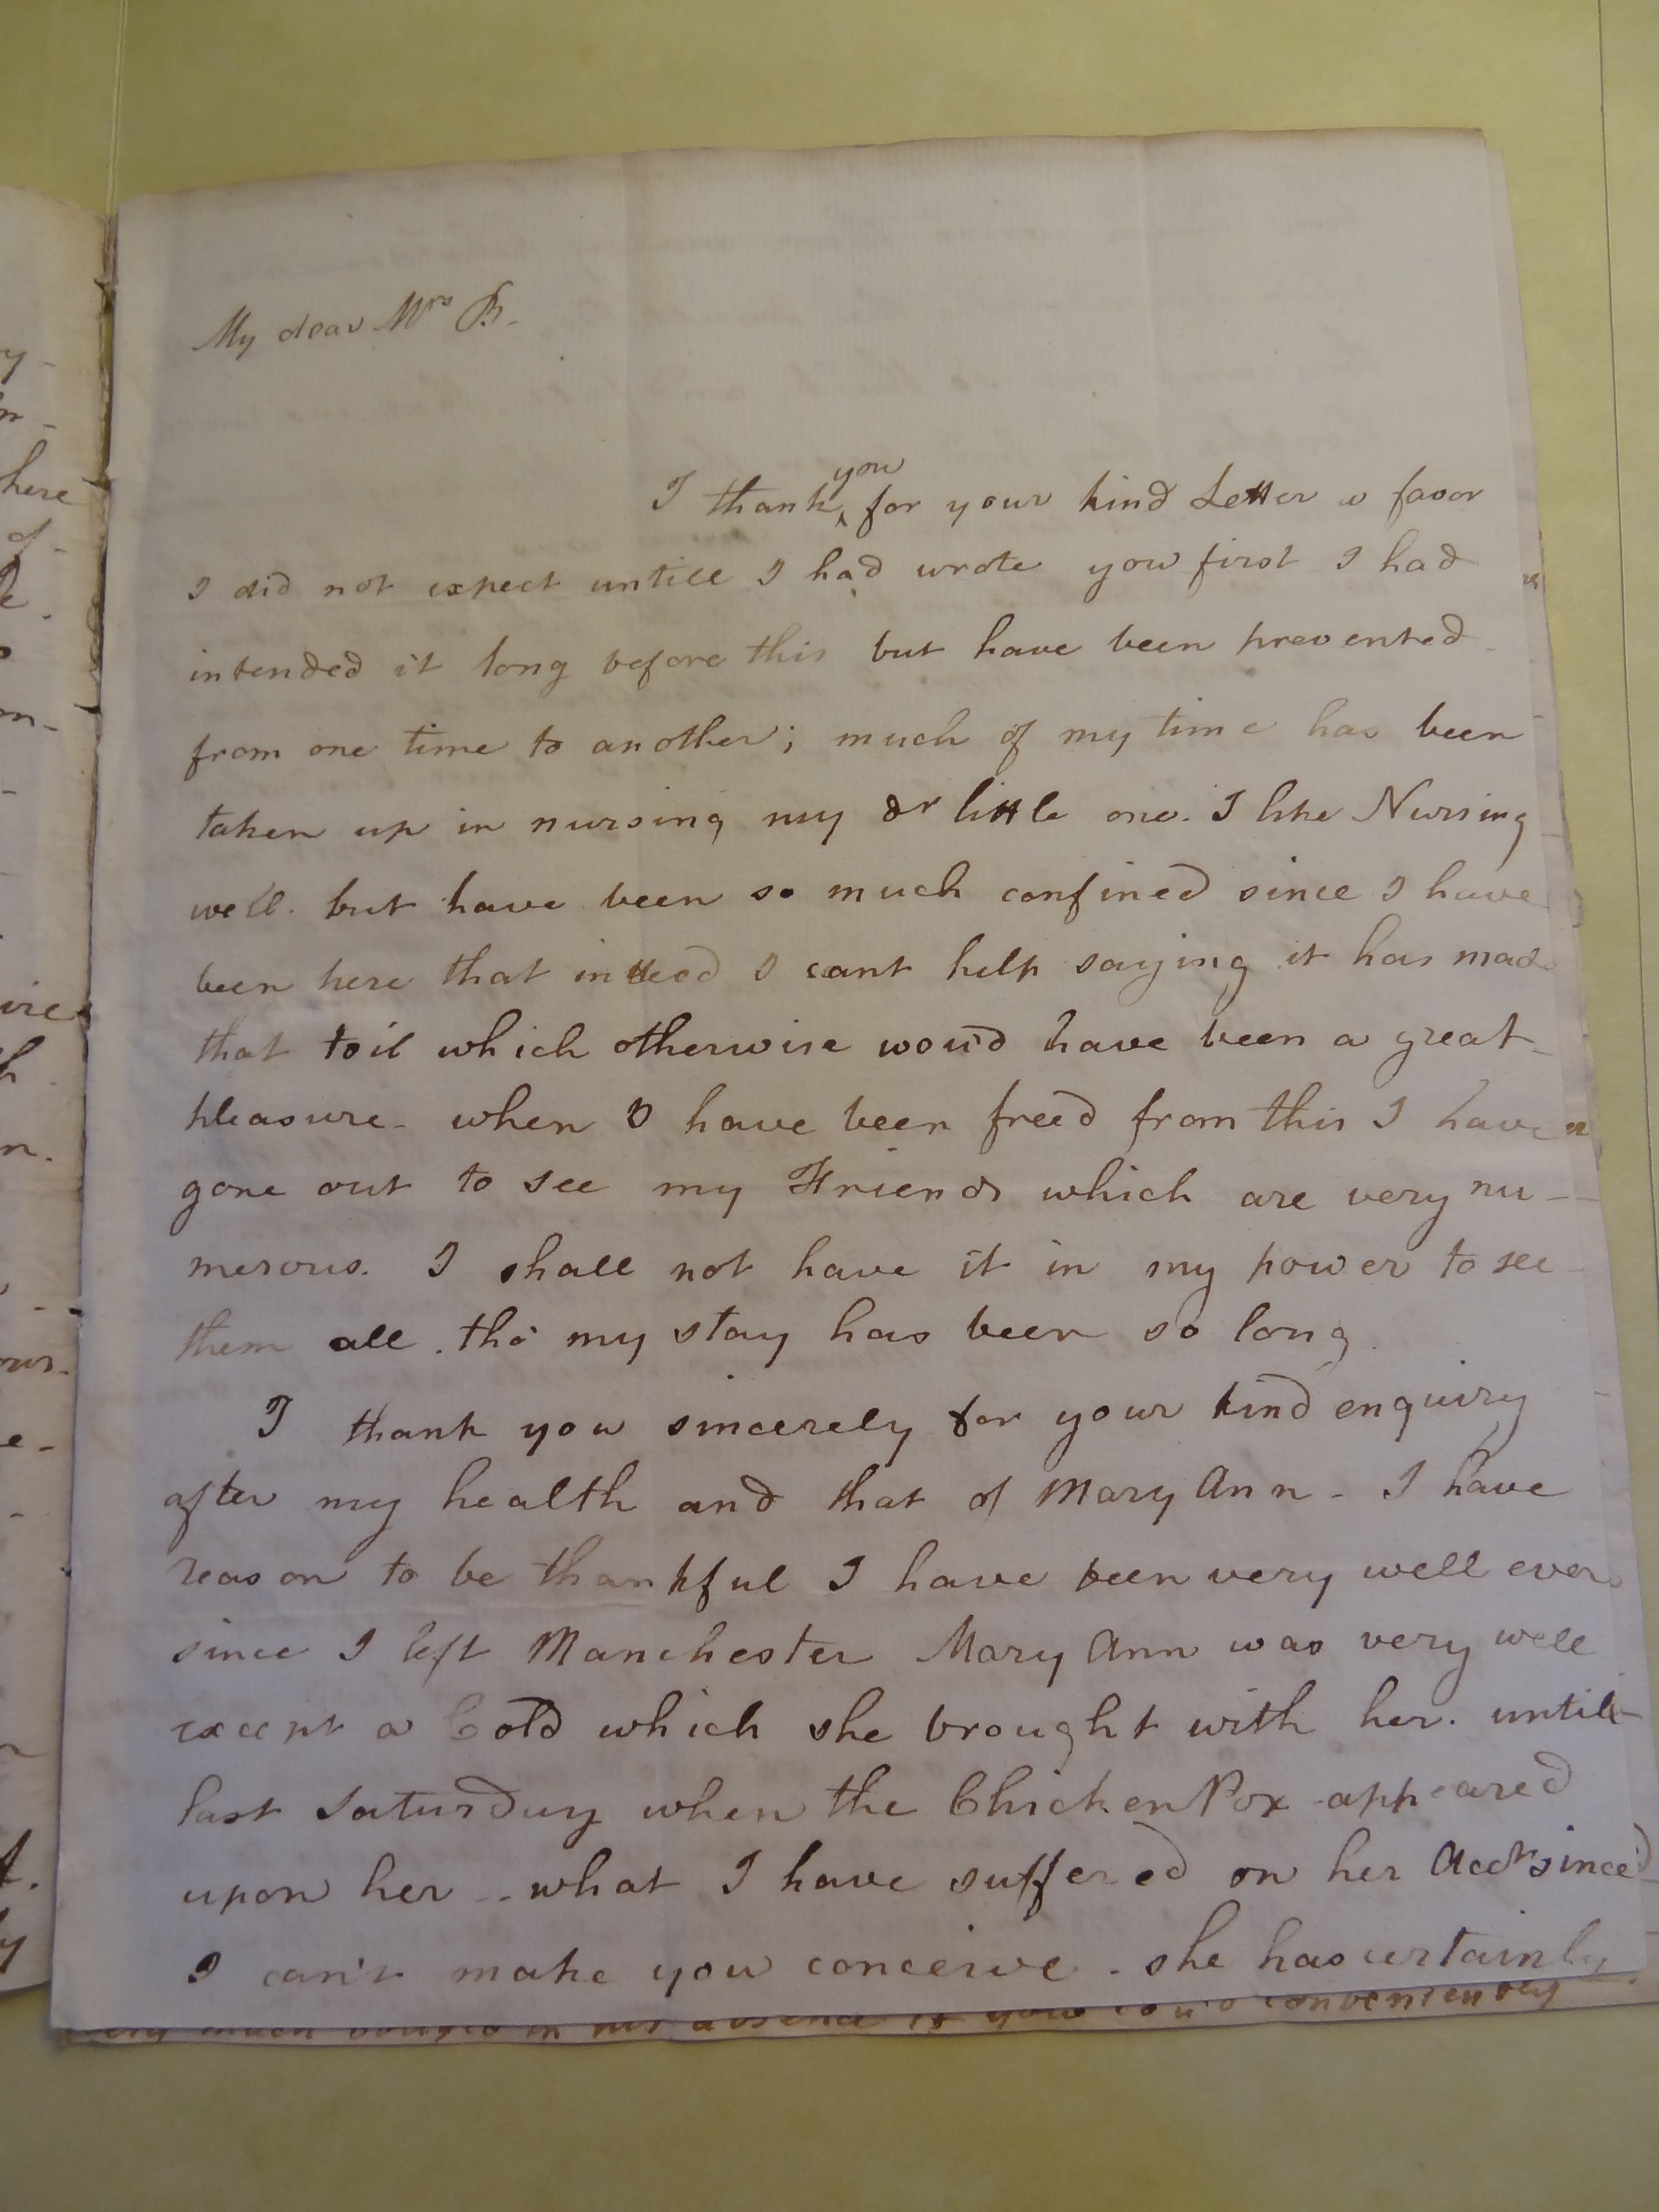 My dear Mrs B.
I thank you for your kind Letter a favor
I did not expect untill I had wrote you first I had
intended it long before this but have been prevented
from one time to another; much of my time has been
taken up in nursing my dr little one. I like Nursing
well. but have been so much confined since I have
been here that indeed I cant help saying it has made
that toil which otherwise wou'd have been a great
pleasure. when I have been freed from this I have
gone out to see my Friends which are very nu-
merous. I shall not have it in my power to see
them all. tho' my stay has been so long.
I thank you sincerely for your kind enquiry
after my health and that of Mary Ann - I have
reason to be thankful I have been very well ever
since I left Manchester Mary Ann was very well
except a Cold which she brought with her. untill
last Saturday when the Chicken Pox appeared
upon her .. what I have suffered on her Acct since
I can't make you conceive. she has certainly
much obliged in his absence if you cou'd conveniently